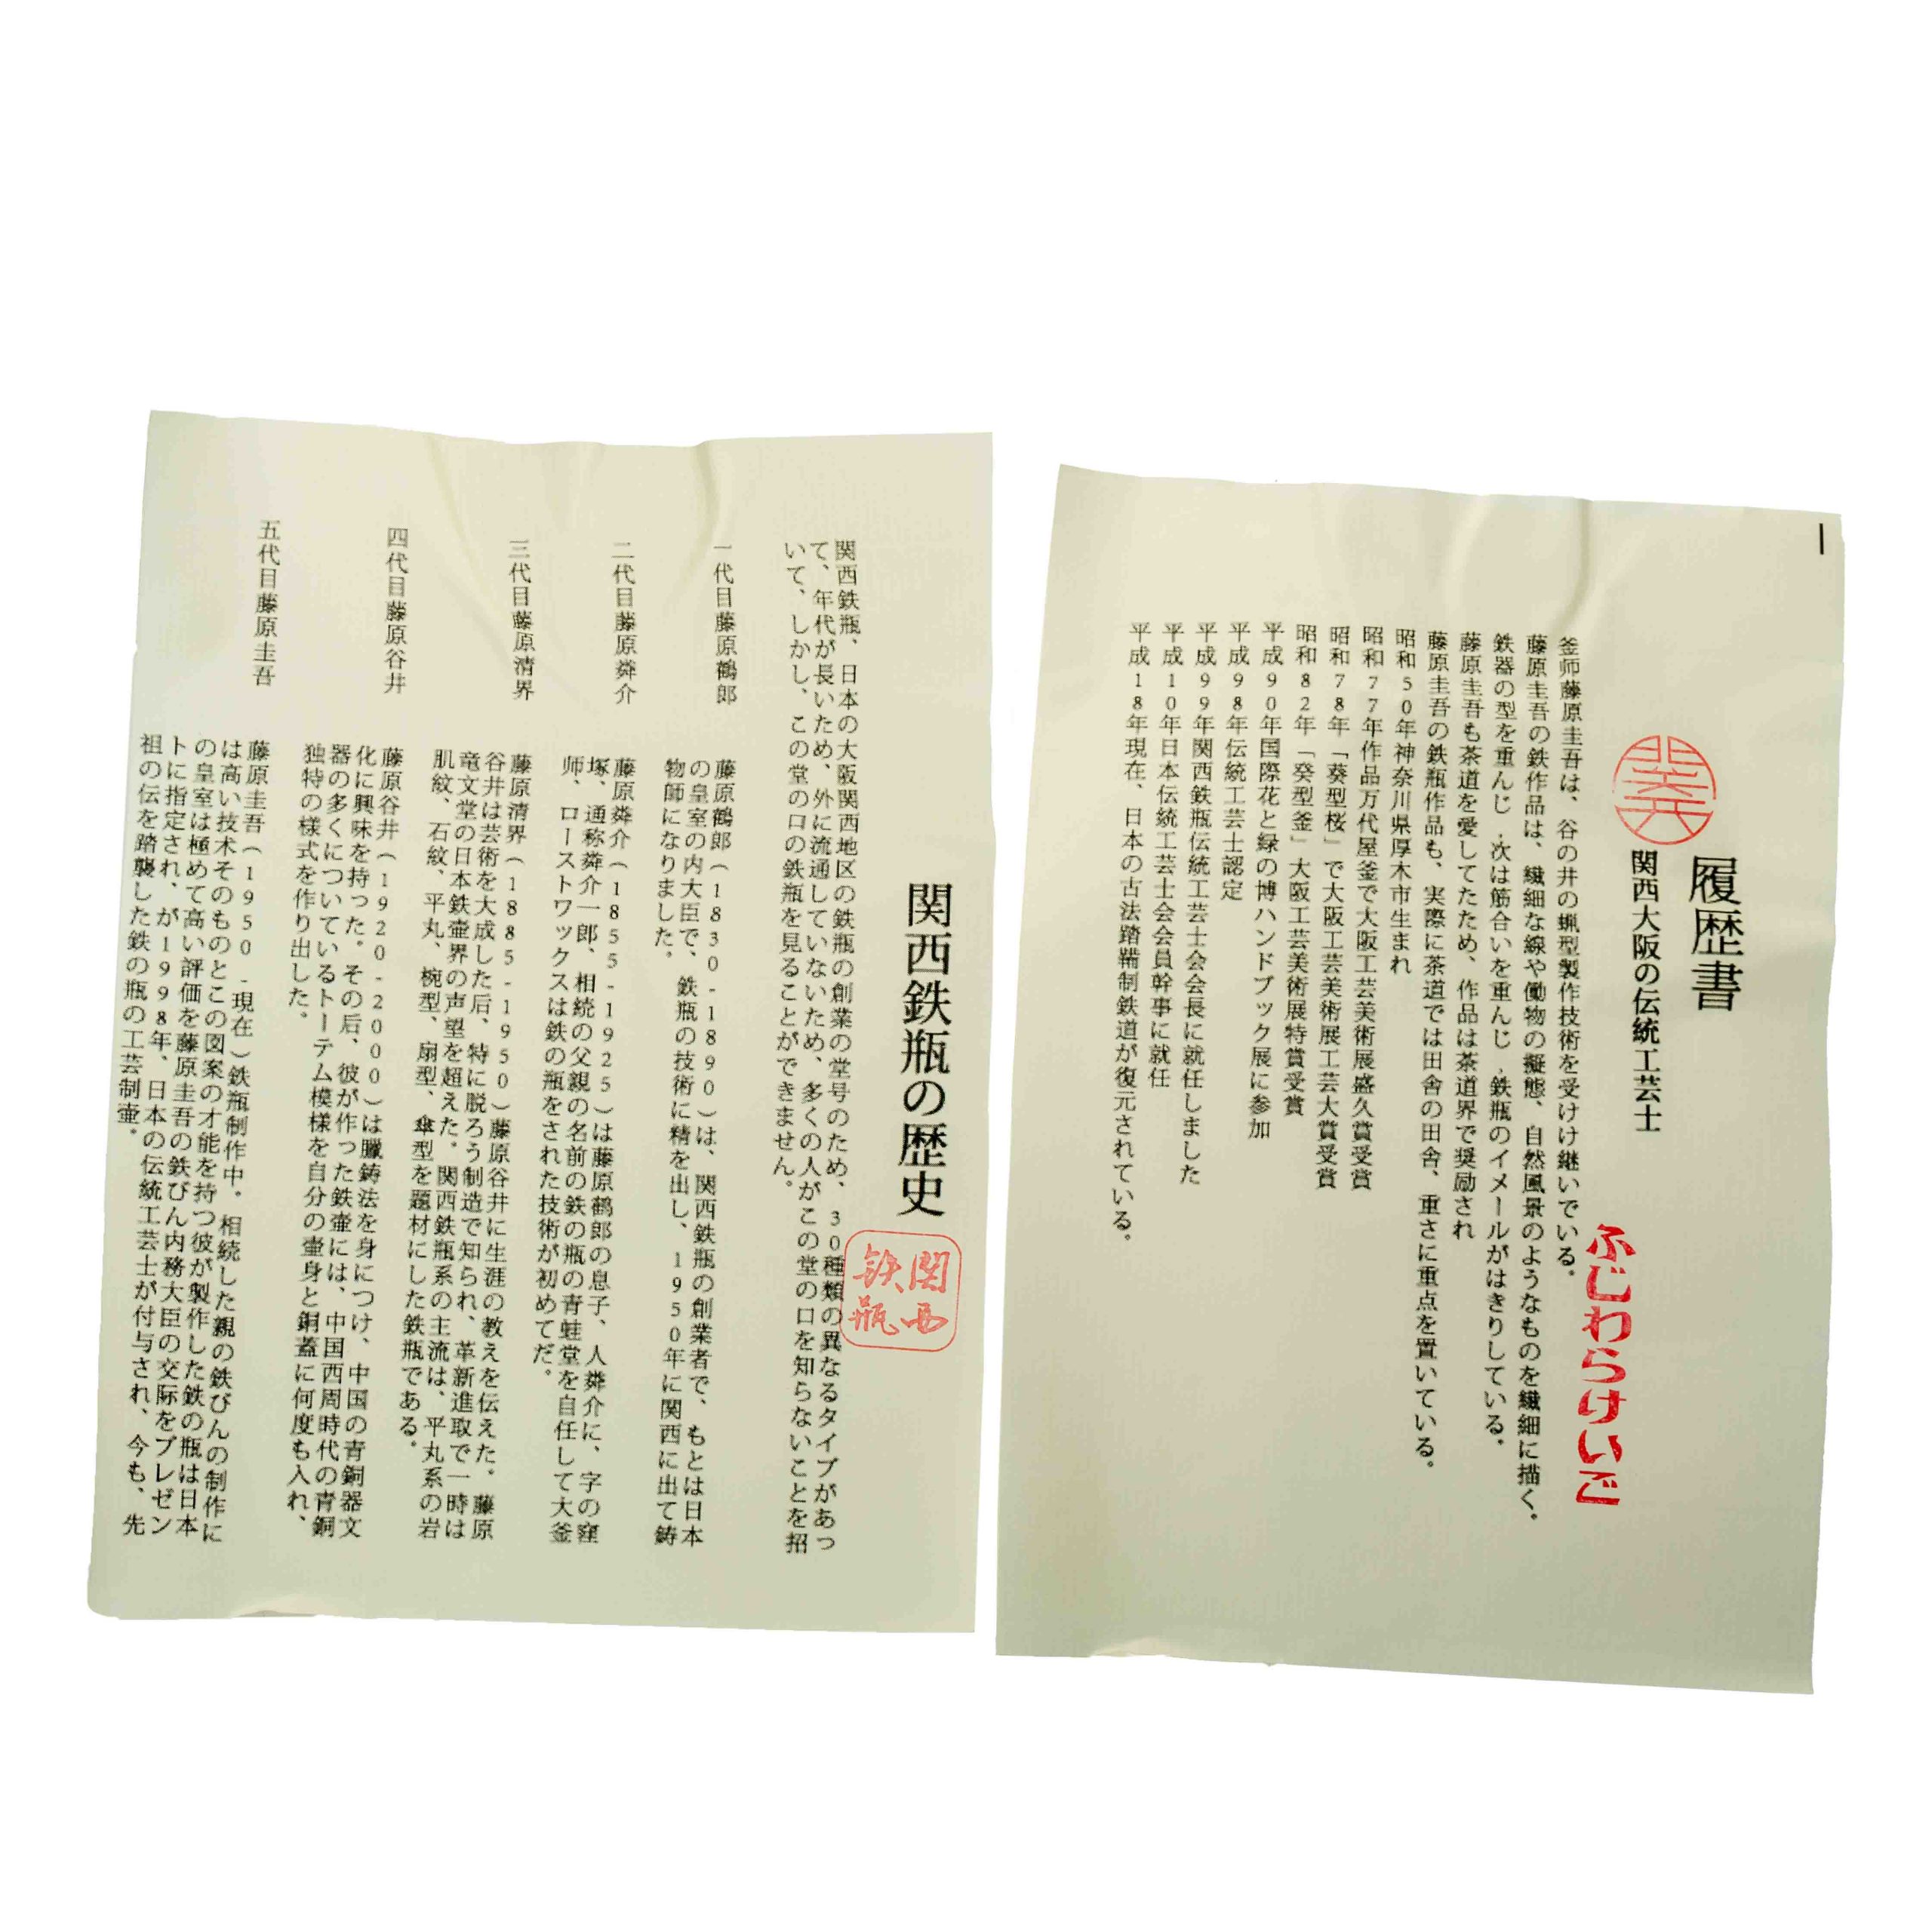 履歴書
関西大阪の伝統工芸士
ふじわらけいご
釜师藤原圭吾は、谷の井の蝋型製作技術を受けけ継いでいる。
藤原圭吾の鉄作品は、繊細な線や働物の擬態、自然風景のようなものを繊細に描く。
鉄器の型を重んじ,次は筋合いを重んじ,鉄瓶のイメールがはきりしている。
藤原圭吾も茶道を愛してたため、作品は茶道界で奨励され
藤原圭吾の鉄瓶作品も、実際に茶道では田舎の田舎、重さに重点を置いている。
昭和50年神奈川県厚木市生まれ
昭和77年作品万代屋釜で大阪工芸美術展盛久賞受賞
昭和78年「葵型桜」で大阪工芸美術展工芸大賞受賞
昭和82年「癸型釜」大阪工芸美術展特賞受賞
平成90年国際花と緑の博ハンドブック展に参加
平成98年伝統工芸士認定
平成99年関西鉄瓶伝統工芸士会会長に就任しました
平成10年日本伝統工芸士会会員幹事に就任
平成18年現在、日本の古法踏鞴制鉄道が復元されている。
関西鉄瓶の歴史
関西
鉄瓶
関西鉄瓶、日本の大阪関西地区の鉄瓶の創業の堂号のため、30種類の異なるタイプがあっ
て、年代が長いため、外に流通していないため、多くの人がこの堂の口を知らないことを招
いて、しかし、この堂の口の鉄瓶を見ることができません。
一代目藤原鶴郎
藤原鶴郎(1830-1890)は、関西鉄瓶の創業者で、もとは日本
の皇室の内大臣で、鉄瓶の技術に精を出し、1950年に関西に出て鋳
物師になりました。
二代目藤原粦介
藤原粦介(1855-1925)は藤原鶴郎の息子、人粦介に、字の窪
塚、通称粦介一郎、相続の父親の名前の鉄の瓶の青蛙堂を自任して大釜
师、ローストワックスは鉄の瓶をされた技術が初めてだ。
三代目藤原清界
藤原清界(1885-1950)藤原谷井に生涯の教えを伝えた。藤原
谷井は芸術を大成した后、特に脱ろう制造で知られ、革新進取で一時は
竜文堂の日本鉄壷界の声望を超えた。関西鉄瓶系の主流は、平丸系の岩
肌紋、石紋、平丸、椀型、扇型、傘型を題材にした鉄瓶である。
四代目藤原谷井
藤原谷井(1920-2000)は臘鋳法を身につけ、中国の青銅器文
化に興味を持った。その后、彼が作った鉄壷には、中国西周時代の青銅
器の多くについているトーテム模様を自分の壷身と銅蓋に何度も入れ、
独特の様式を作り出した。
五代目藤原圭吾
藤原圭吾(1950-現在)鉄瓶制作中。相続した親の鉄びんの制作に
は高い技術そのものとこの図案の才能を持つ彼が製作した鉄の瓶は日本
の皇室は極めて高い評価を藤原圭吾の鉄びん内務大臣の交际をプレゼン
トに指定され、が1998年、日本の伝統工芸士が付与され、今も、先
祖の伝を踏襲した鉄の瓶の工芸制壷。